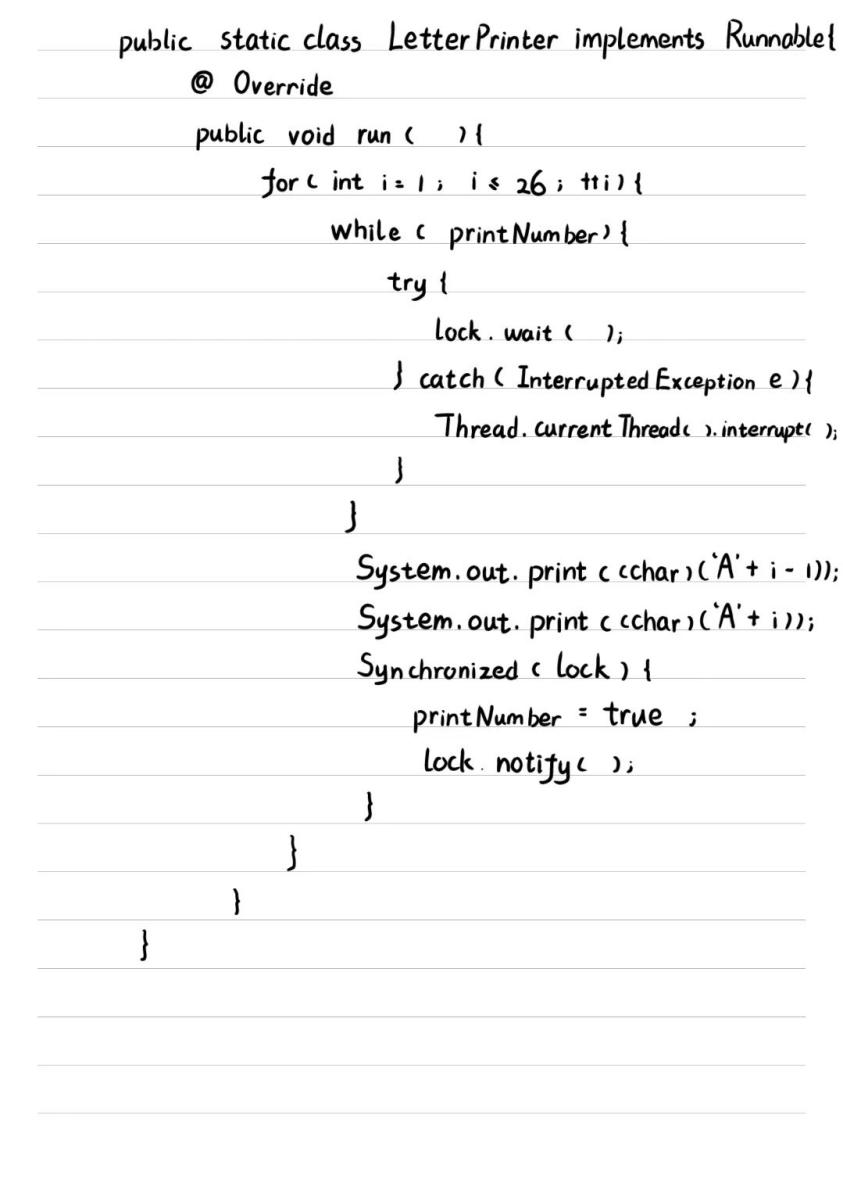 public static class LetterPrinter implements Runnable{
@ Override
public void run ( ){
for ( int i = 1 ; i ≤ 26 ; ++i) {
while ( printNumber) {
try {
lock . wait ( );
} catch ( Interrupted Exception e ) {
Thread . current Thread( ). interrupt( );
}
}
System. out. print ( (char) ('A' + i - 1));
System. out. print ( (char) ('A' + i));
Synchronized ( lock ) {
printNumber = true ;
lock . notify( );
}
}
}
}